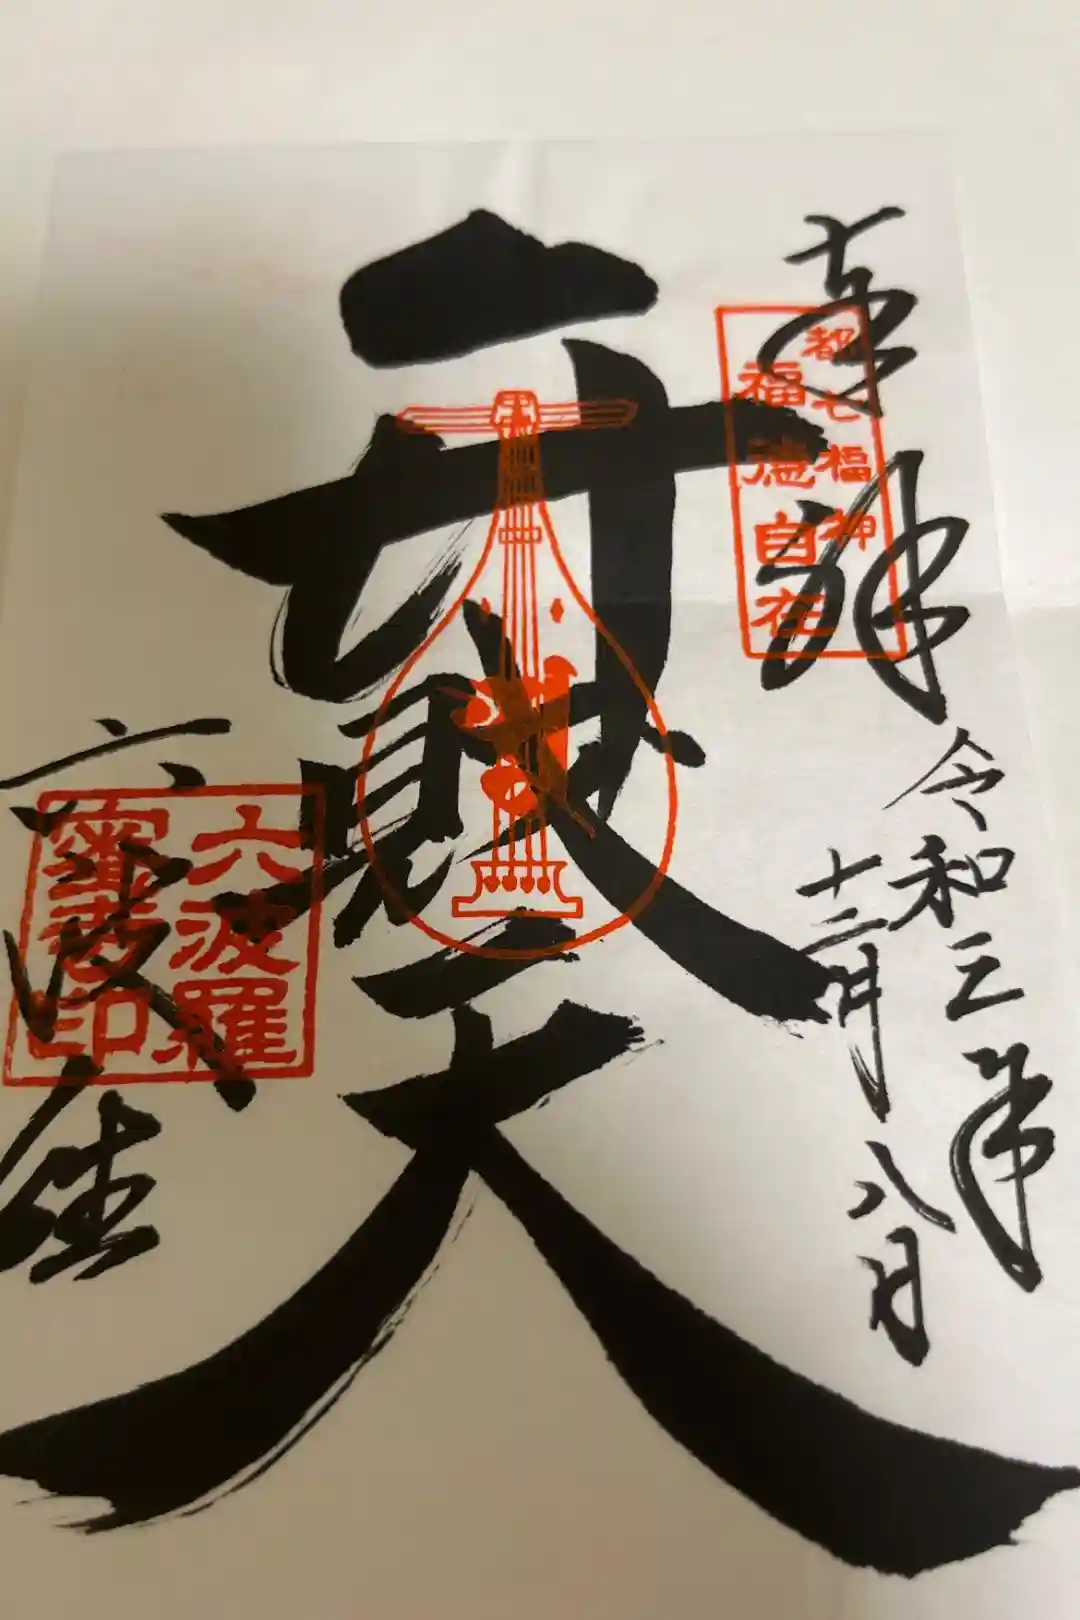 奉拝
都七福神
福徳自在
令和三年
十二月八日
弁財天
六波羅
密寺印
六波羅